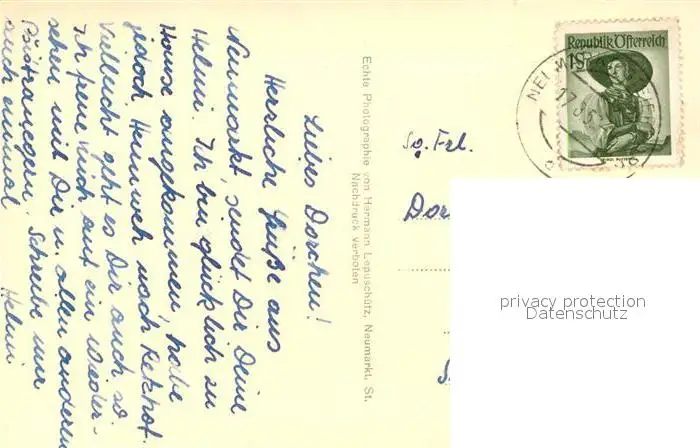 Liebes Dorchen!
Herzliche Grüße aus
Neumarkt, sendet Dir Deine
Helmi. Ich bin glücklich zu
Hause angekommen, habe
jedoch Heimweh nach
Vielleicht geht es Dir auch so.
Ich freue mich auf ein Wieder-
sehen mit Dir u. allen anderen
Schreibe mir
auch einmal Helmi
Echte Photographie von Hermann Lepuschütz, Neumarkt, St.
Nachdruck verboten
Republik Österreich
1S
NEUM
Sg. Frl.
Dor
S
privacy protection
Datenschutz